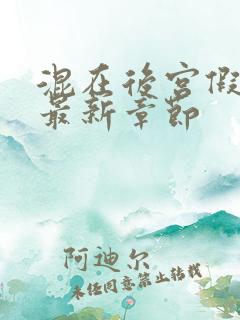 混在後宮假
最新章節
阿迪尔
未经同意禁止转载